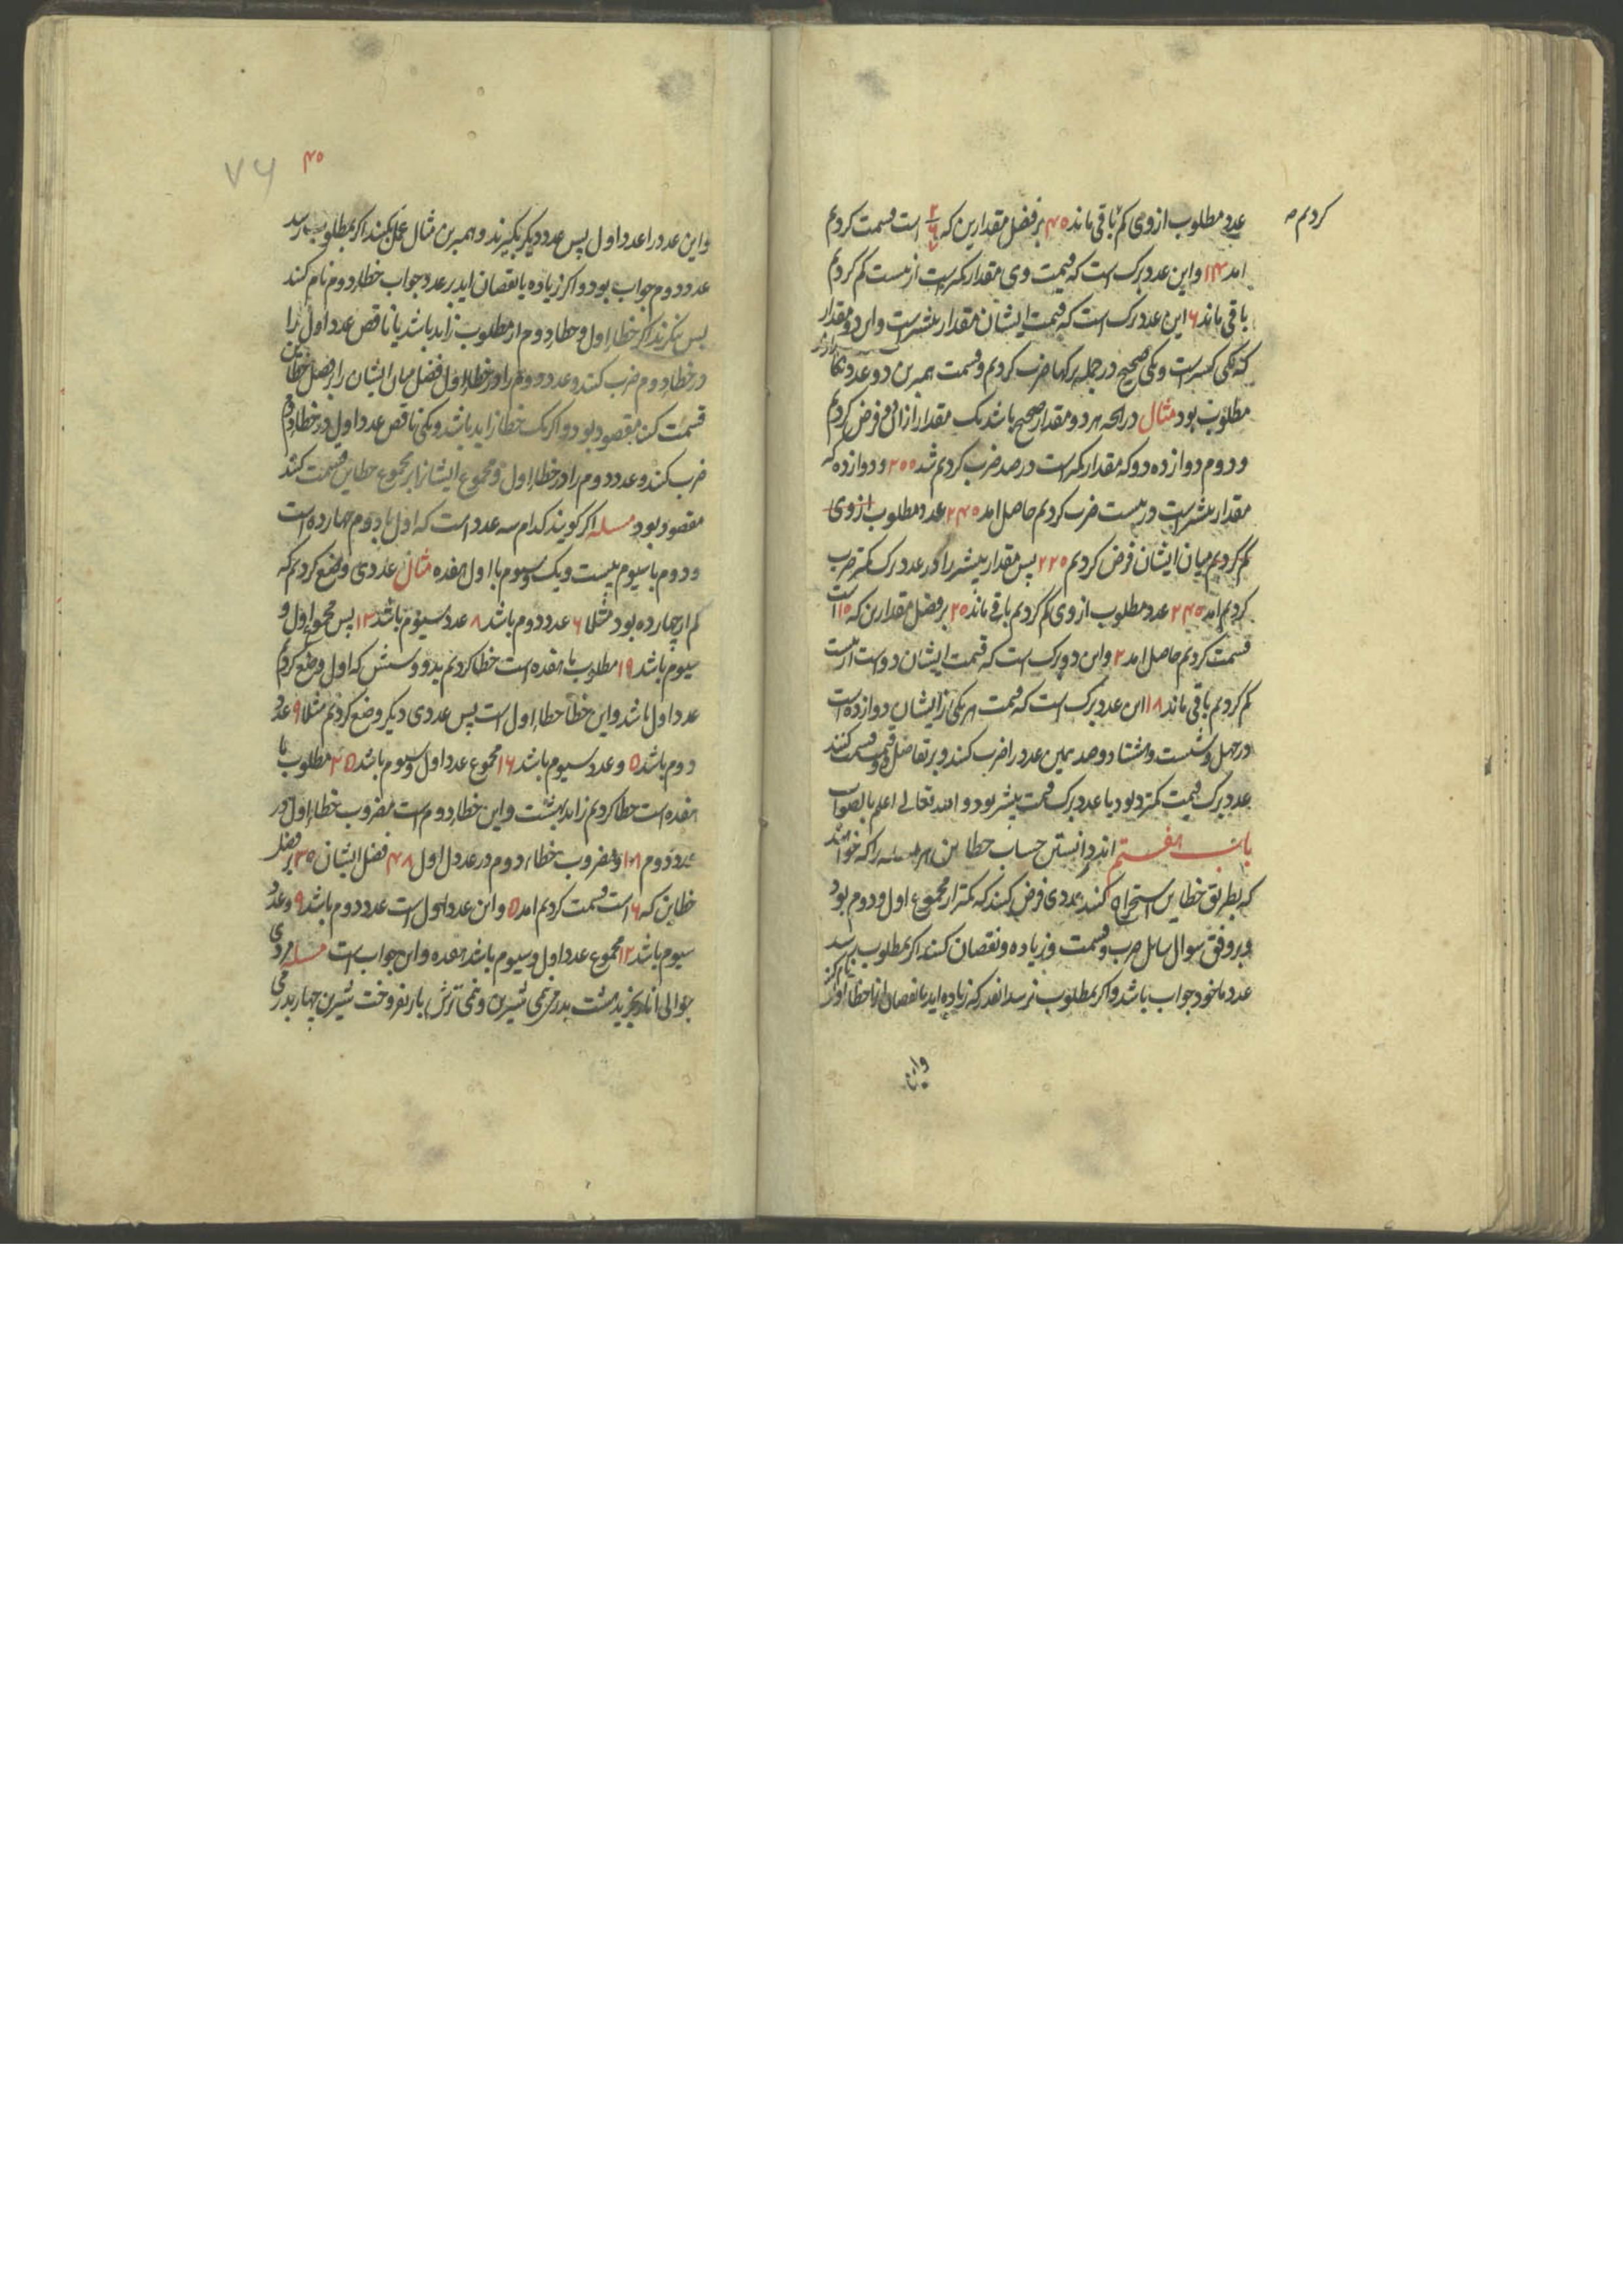 کردیم صہ
عدد مطلوب از وی کم باقی ماند ۴۵ بر فضل مقدارین که است قسمت کردیم
امد ۱۴ و این عدد برک است که قیمت وی مقدار کمتر است از بیست کم کردیم
باقی ماند ۶ این عدد برک است که قیمت ایشان مقدار بیشتر است و این دو مقدار
که یکی کسر است و یکی صحیح در جمله برکها ضرب کردیم و قسمت همبرین دو عدد
مطلوب بود مثال در انچه هر دو مقدار صحیح باشد یک مقدار از ان فرض کردیم
و دوم دوازده دو که مقدار کمتر است در صد ضرب کردیم شد ۲۰۰ و دوازده که
مقدار بیشتر است در بیست ضرب کردیم حاصل امد ۲۴۰ عدد مطلوب از وی
کم کردیم میان ایشان فرض کردیم ۲۲۰ پس مقدار بیشتر را در عدد برک کمتر ضرب
کردیم امد ۲۴۰ عدد مطلوب از وی کم کردیم باقی ماند ۲۰ بر فضل مقدارین که ۱۰ است
قسمت کردیم حاصل امد ۲ و این دو برک است که قیمت ایشان دو است از بیست
کم کردیم باقی ماند ۱۸ این عدد برک است که قیمت هر یکی از ایشان دوازده است
در چهل و شست و هشتاد و صد همین عدد را ضرب کنند و بر تفاضل قسمت کنند
عدد برک قیمت کمتر بود یا عدد برک قیمت بیشتر بود و الله تعالی اعلم بالصواب
باب هفتم اندر دانستن حساب خطاین هر مسله را که خواهند
که بطریق خطاین استخراج کنند عددی فرض کنند که کمتر از مجموع اول و دوم بود
و بر وفق سوال سایل ضرب و قسمت و زیاده و نقصان کنند اکر بمطلوب برسد
عدد ماخوذ جواب باشد و اکر بمطلوب نرسد انقدر که زیاده اید یا نقصان انرا خطا اول
واین
۴۵
۷۶
و این عدد را عدد اول پس عدد دیکر بکیرند و همبرین مثال عمل بکنند اکر بمطلوب برسد
عدد دوم جواب بود و اکر زیاده یا نقصان اید بر عدد جواب خطاء دوم نام کنند
پس بنکرند اکر خطاء اول و خطاء دوم از مطلوب زاید باشد یا ناقص عدد اول را
در خطاء دوم ضرب کنند و عدد دوم را در خطاء اول فضل میان ایشان را بر فضل خطاین
قسمت کنند مقصود بود و اکر یک خطا زاید باشد و یکی ناقص عدد اول در خطاء دوم
ضرب کنند و عدد دوم را در خطاء اول و مجموع ایشانرا بر مجموع خطاین قسمت کنند
مقصود بود مسله اکر کویند کدام سه عدد است که اول با دوم چهارده است
و دوم با سیوم بیست و یک و سیوم با اول هفده مثال عددی وضع کردیم که
کم از چهارده بود مثلا ۶ عدد دوم باشد ۸ عدد سیوم باشد ۱۳ پس مجموع اول و
سیوم باشد ۱۹ مطلوب ما هفده است خطا کردیم بدو و شش که اول وضع کردیم
عدد اول باشد و این خطا خطاء اول است پس عددی دیکر وضع کردیم مثلا ۹ عدد
دوم باشد ۵ و عدد سیوم باشد ۱۶ مجموع عدد اول و سیوم باشد ۲۵ مطلوب ما
هفده است خطا کردیم زاید بهشت و این خطاء دوم است مضروب خطاء اول در
عدد دوم ۱۸ و مضروب خطاء دوم در عدد اول ۴۸ فضل ایشان ۳۰ بر فضل
خطاین که ۶ است قسمت کردیم امد ۵ و این عدد اول است عدد دوم باشد ۹ و عدد
سیوم باشد ۱۲ مجموع عدد اول و سیوم باشد هفده و این جواب است مسله مردی
جوالی انار بخرید هشت بدرمی نیمی شیرین و نیمی ترش باز بفروخت شیرین چهار بدرمی